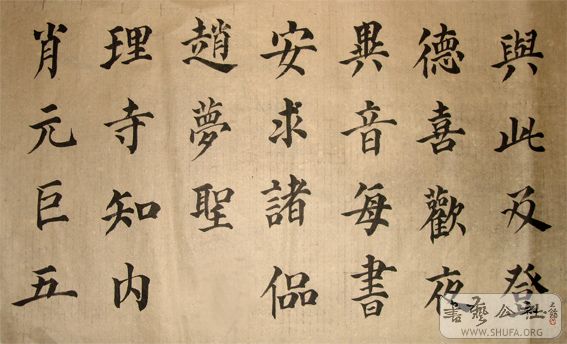 與此及登
德喜歡夜
異音每書
安求諸侶
趙夢聖
理寺知内
肖元巨五
書藝公社
WWW.SHUFA.ORG